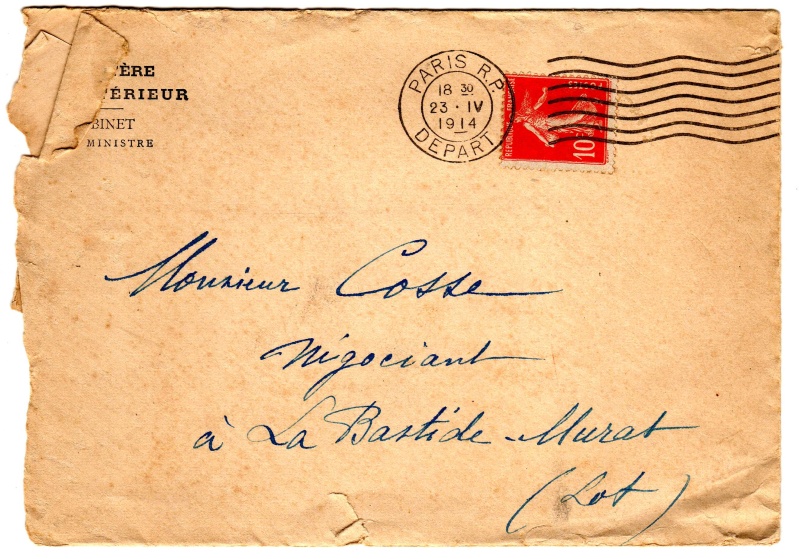 TÈRE
ÉRIEUR
BINET
MINISTRE
PARIS R.P.
18 30
23 · IV
1914
DEPART
POSTES
REPUBLIQUE FRANÇAISE
10
Monsieur Cosse
Négociant
à La Bastide-Murat
(Lot)